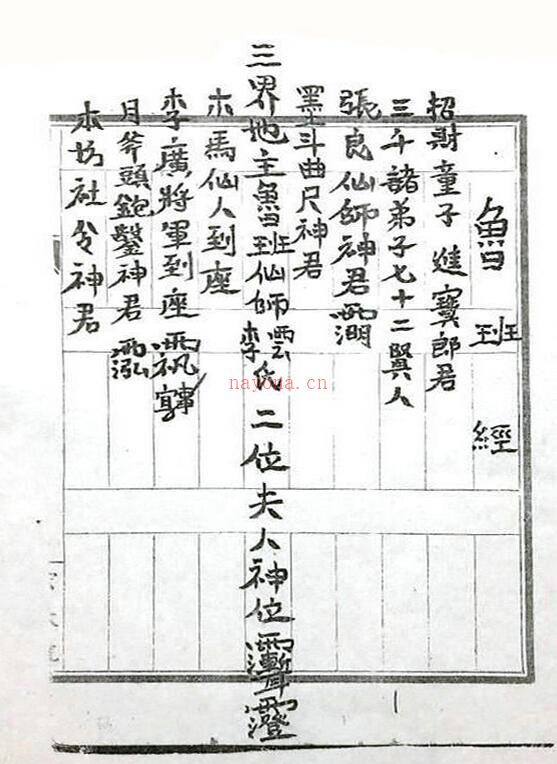 魯班經
招財童子 進寶郎君
三千諸弟子七十二賢人
張良仙師神君
墨斗曲尺神君
三界地主魯班仙師雲氏李氏二位夫人神位
木馬仙人到座
李廣將軍到座
月斧頭鉋鑿神君
本坊社令神君
nayona.cn